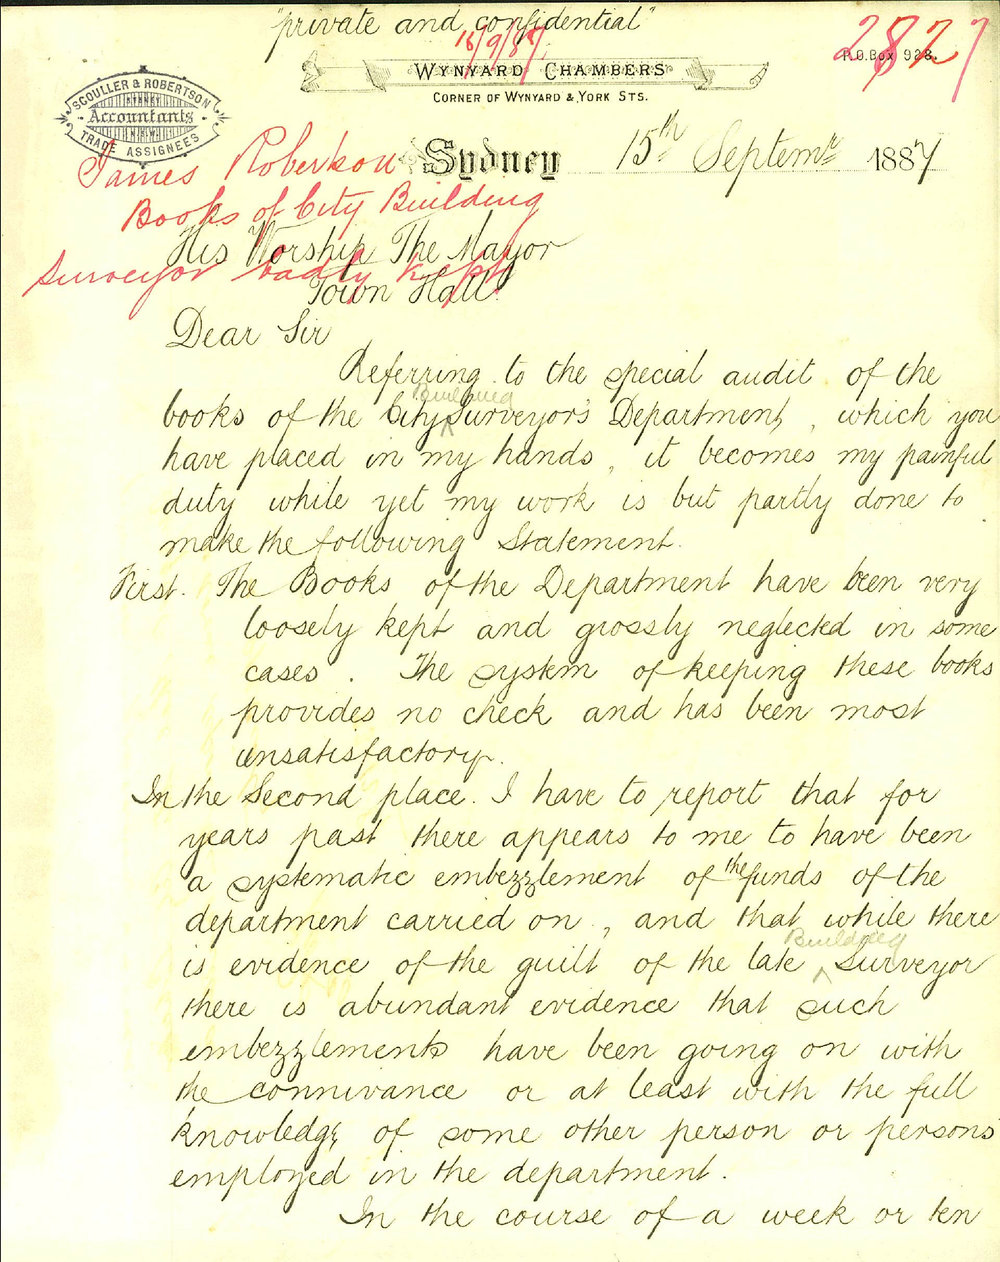 "private and confidential"
16/9/87
2827
P.O.Box 928.
WYNYARD CHAMBERS
CORNER OF WYNYARD & YORK STS.
SCOULLER & ROBERTSON
SYDNEY
Accountants
N.S.W.
TRADE ASSIGNEES
Sydney 15th Septemr 1887
James Robertson
Books of City Building
Surveyor badly kept
His Worship The Mayor
Town Hall.
Dear Sir
Referring to the special audit of the
books of the City Building Surveyor's Department, which you
have placed in my hands, it becomes my painful
duty while yet my work is but partly done to
make the following Statement.
First. The Books of the Department have been very
loosely kept and grossly neglected in some
cases. The system of keeping these books
provides no check and has been most
unsatisfactory.
In the Second place. I have to report that for
years past there appears to me to have been
a systematic embezzlement of the funds of the
department carried on, and that while there
is evidence of the guilt of the late Building Surveyor
there is abundant evidence that such
embezzlements have been going on with
the connivance or at least with the full
knowledge of some other person or persons
employed in the department.
In the course of a week or ten